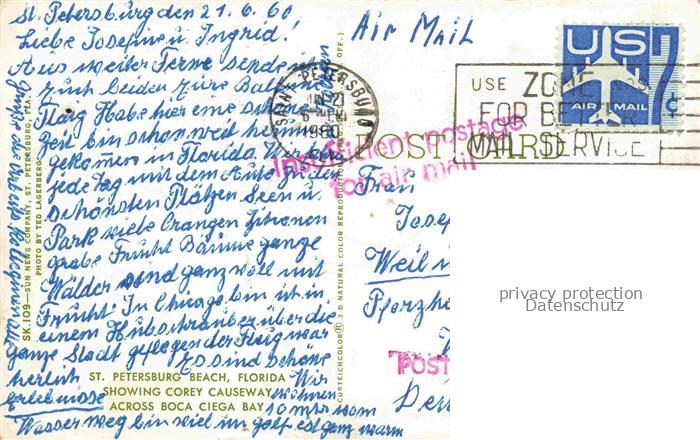 St. Petersburg den 21. 6. 60
Liebe Josefine u. Ingrid!
Aus weiter Ferne sende ich
Euch beiden
Habe hier eine schöne
Zeit bin schon weit herum
gekommen in Florida. Wir
jede Tag mit dem Auto zu den
schönsten Plätzen Seen u.
Park viele Orangen Zitronen
grabe Frucht Bäume ganze
Wälder sind ganz voll mit
Frucht. In Chicago bin ich in
einem Hubschrauber über die
ganze Stadt geflogen der Flug war
herlich Es sind schöne
Erlebnisse Wir wohnen
10 mtr vom
Wasser weg bin viel im golf ist ganz warm
Air Mail
SAINT PETERSBURG
JUN 21
6 PM
1960
USE ZONE
FOR BETTER
MAIL SERVICE
US 7c
AIR MAIL
Insufficient postage
for air mail
POST CARD
Frau
Josef
Weil
Pforzhe
POST
privacy protection
Datenschutz
SK.109—SUN NEWS COMPANY, ST. PETERSBURG, FLA.
PHOTO BY TED LAGERBERG
CURTEICHCOLOR® 3 D NATURAL COLOR REPRODUCTION
OFF.)
ST. PETERSBURG BEACH, FLORIDA
SHOWING COREY CAUSEWAY
ACROSS BOCA CIEGA BAY